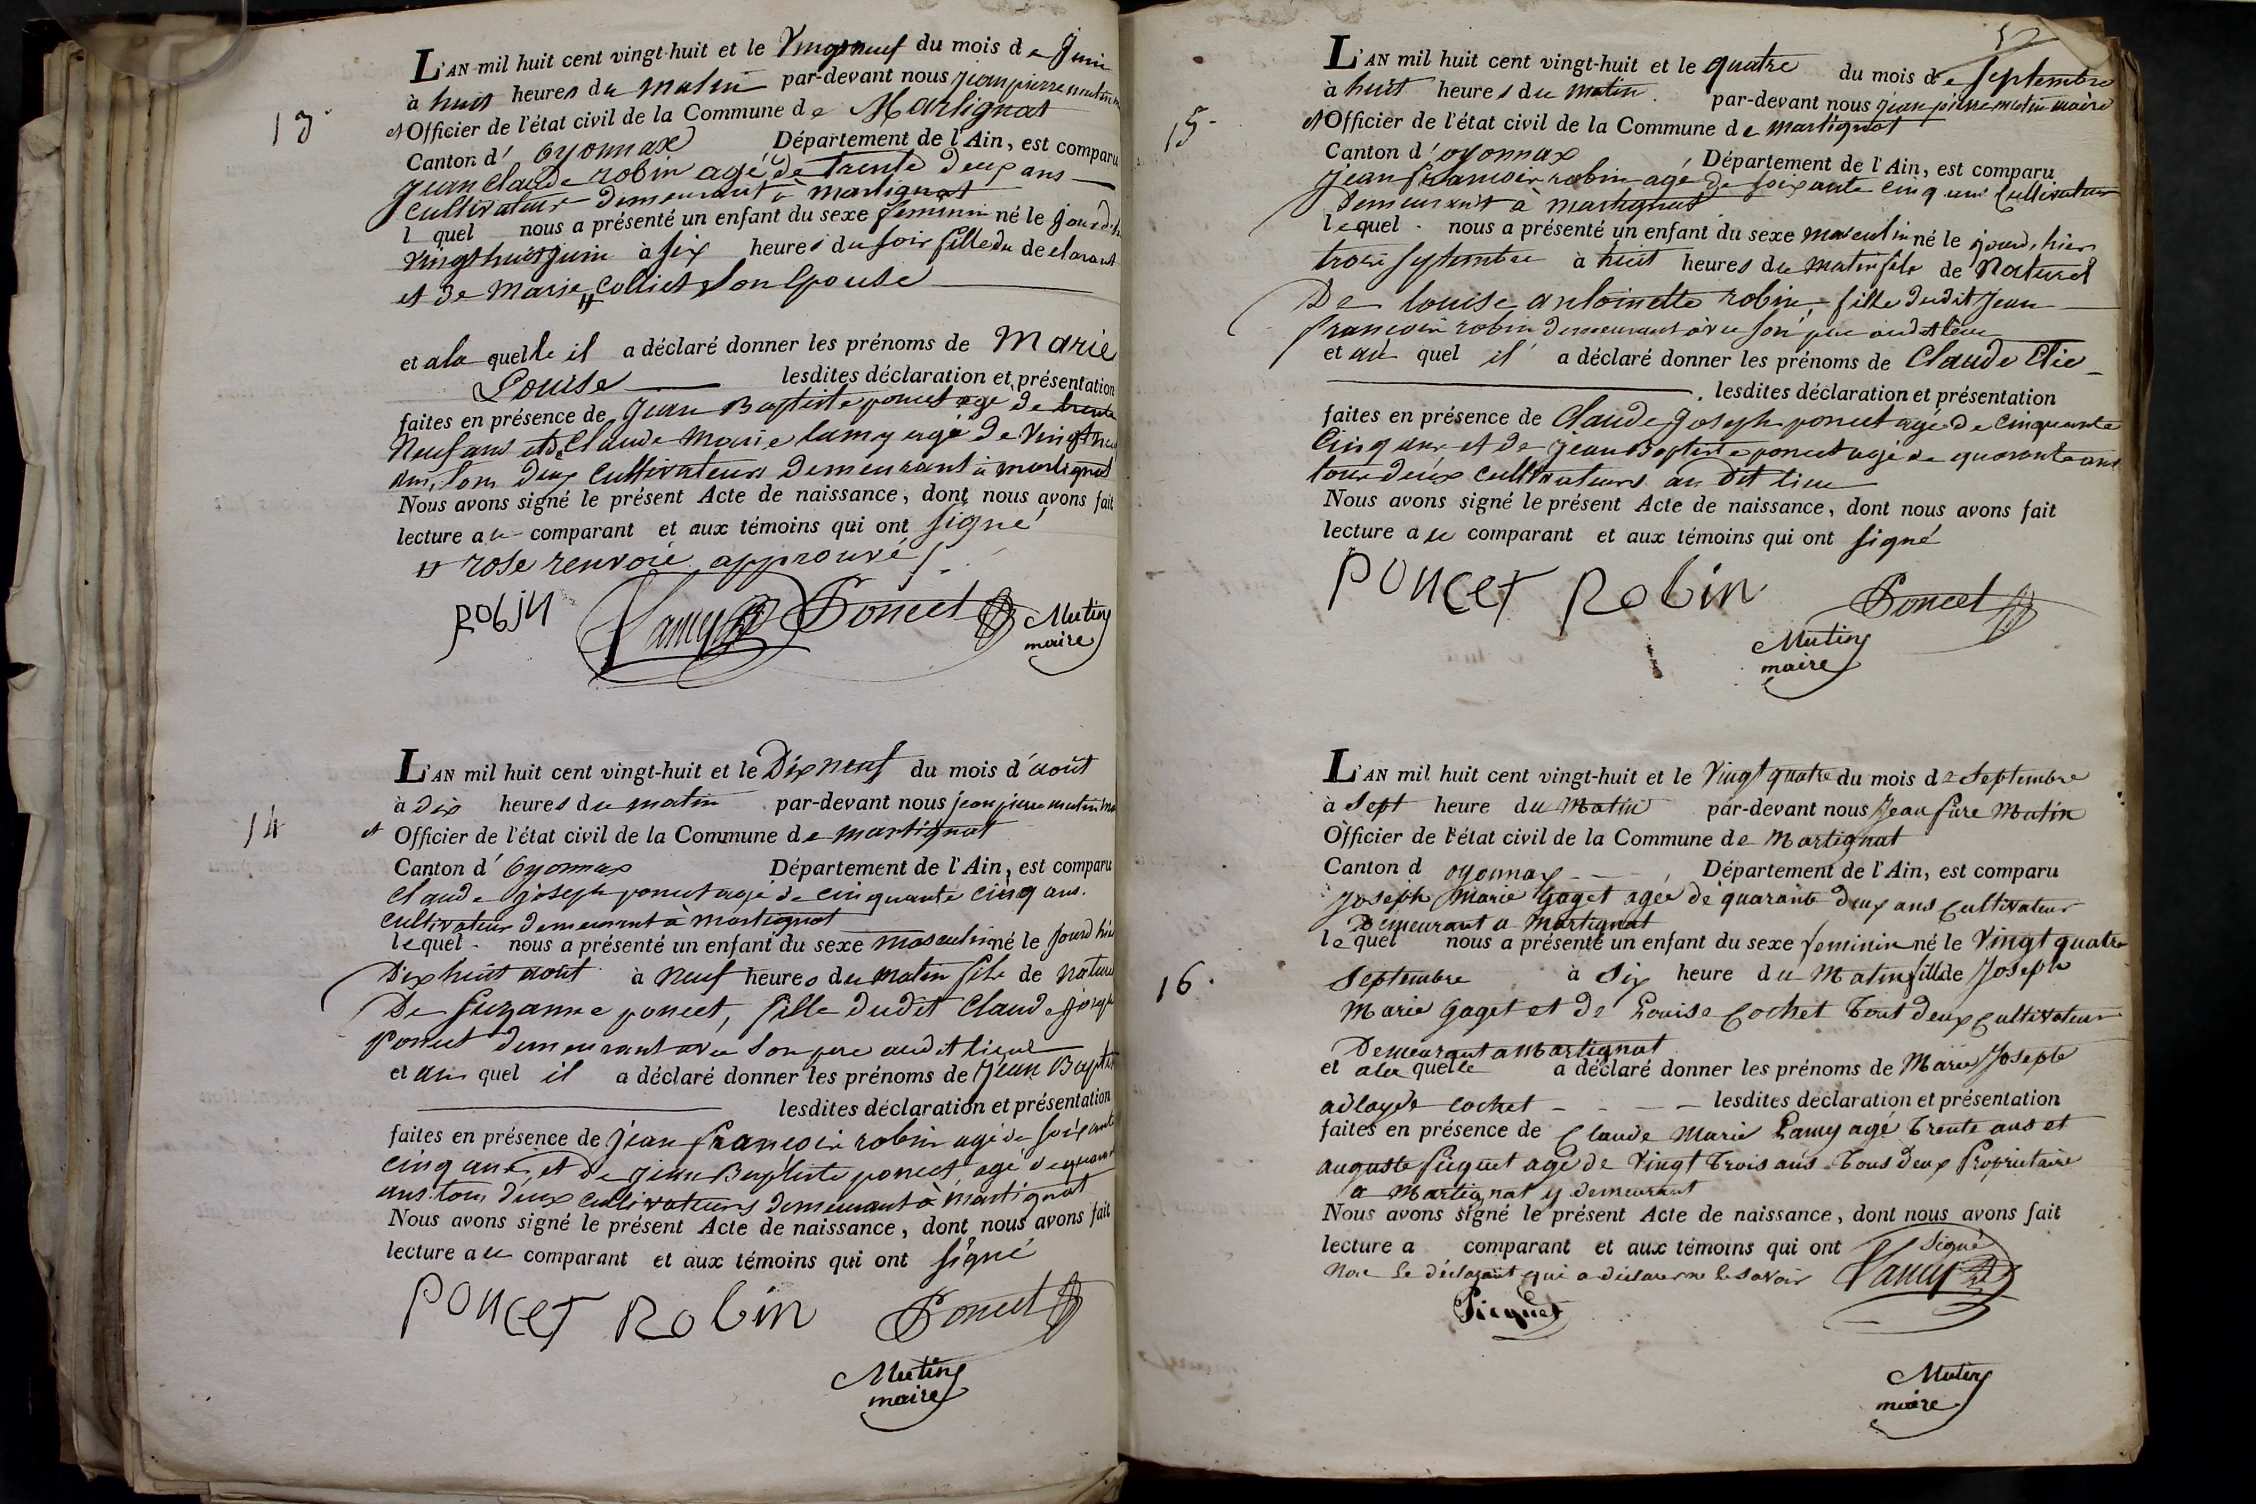 13.
L'AN mil huit cent vingt-huit et le Vingt neuf du mois de Juin
à huit heures du matin par-devant nous jean pierre mutin
et Officier de l'état civil de la Commune de Martignat
Canton d' Oyonnax Département de l'Ain, est comparu
jean Claude robin agé de trente deux ans
cultivateur demeurant à martignat
l quel nous a présenté un enfant du sexe feminin né le jourd'h
vingt huit juin à six heures du soir fille du declarant
et de Marie # Colliet son Epouse
et a la quelle il a déclaré donner les prénoms de Marie
Louise lesdites déclaration et présentation
faites en présence de jean Baptiste poncet agé de trente
Neuf ans et de Claude Marie lamy agé de vingt neu
ans, tous deux cultivateurs demeurant à martignat
Nous avons signé le présent Acte de naissance, dont nous avons fait
lecture au comparant et aux témoins qui ont signé
# rose renvoie approuvé
Robin Lamy Poncet Mutin
maire
14
L'AN mil huit cent vingt-huit et le Dix neuf du mois d'août
à dix heures du matin par-devant nous jean pierre mutin ma
et Officier de l'état civil de la Commune de martignat
Canton d' Oyonnax Département de l'Ain, est comparu
Claude joseph poncet agé de cinquante cinq ans.
cultivateur demeurant à Martignat
lequel nous a présenté un enfant du sexe masculin né le jourd'hie
Dix huit août à neuf heures du matin fils de nature
De Suzanne poncet, fille dudit Claude joseph
Poncet demeurant avec son pere audit lieu
et au quel il a déclaré donner les prénoms de Jean Baptis
lesdites déclaration et présentation
faites en présence de jean françois robin agé de soixante
cinq ans, et de jean Baptiste poncet agé de quarant
ans tous deux cultivateurs demeurant à martignat
Nous avons signé le présent Acte de naissance, dont nous avons fait
lecture au comparant et aux témoins qui ont signé
Poncet Robin Poncet
Mutin
maire
52
15.
L'AN mil huit cent vingt-huit et le quatre du mois de septembre
à huit heures du matin par-devant nous jean pierre mutin maire
et Officier de l'état civil de la Commune de martignat
Canton d' oyonnax Département de l'Ain, est comparu
jean françois robin agé de soixante cinq ans cultivateur
demeurant à martignat
lequel nous a présenté un enfant du sexe masculin né le jourd'hier
trois septembre à huit heures du matin fils de Naturel
De louise antoinette robin, fille dudit jean
françois robin demeurant avec son pere audit lieu
et au quel il a déclaré donner les prénoms de Claude Elie
lesdites déclaration et présentation
faites en présence de Claude joseph poncet agé de cinquante
cinq ans, et de jean Baptiste poncet agé de quarante ans
tous deux cultivateurs au dit lieu
Nous avons signé le présent Acte de naissance, dont nous avons fait
lecture au comparant et aux témoins qui ont signé
Poncet Robin Poncet
Mutin
maire
16.
L'AN mil huit cent vingt-huit et le Vingt quatre du mois de Septembre
à Sept heure du Matin par-devant nous Jean Piere Mutin
Officier de l'état civil de la Commune de Martignat
Canton d oyonnax Département de l'Ain, est comparu
joseph Marie Gaget agée de quarante deux ans cultivateur
Demeurant a Martignat
le quel nous a présenté un enfant du sexe feminin né le Vingt quatre
Septembre à Six heure du Matin fille de Joseph
Marie Gaget et de Louise Cochet Tout deux cultivateur
Demeurant a Martignat
et a la quelle a déclaré donner les prénoms de Marie Josephe
adlayde Cochet lesdites déclaration et présentation
faites en présence de Claude Marie Lamy agé Trente ans et
auguste Picquet agé de Vingt Trois ans Tous deux Propriétaire
a Martignat y demeurant
Nous avons signé le présent Acte de naissance, dont nous avons fait
lecture a comparant et aux témoins qui ont Signé
Non le déclarant qui a déclaré ne le savoir Lamy
Picquet
Mutin
maire